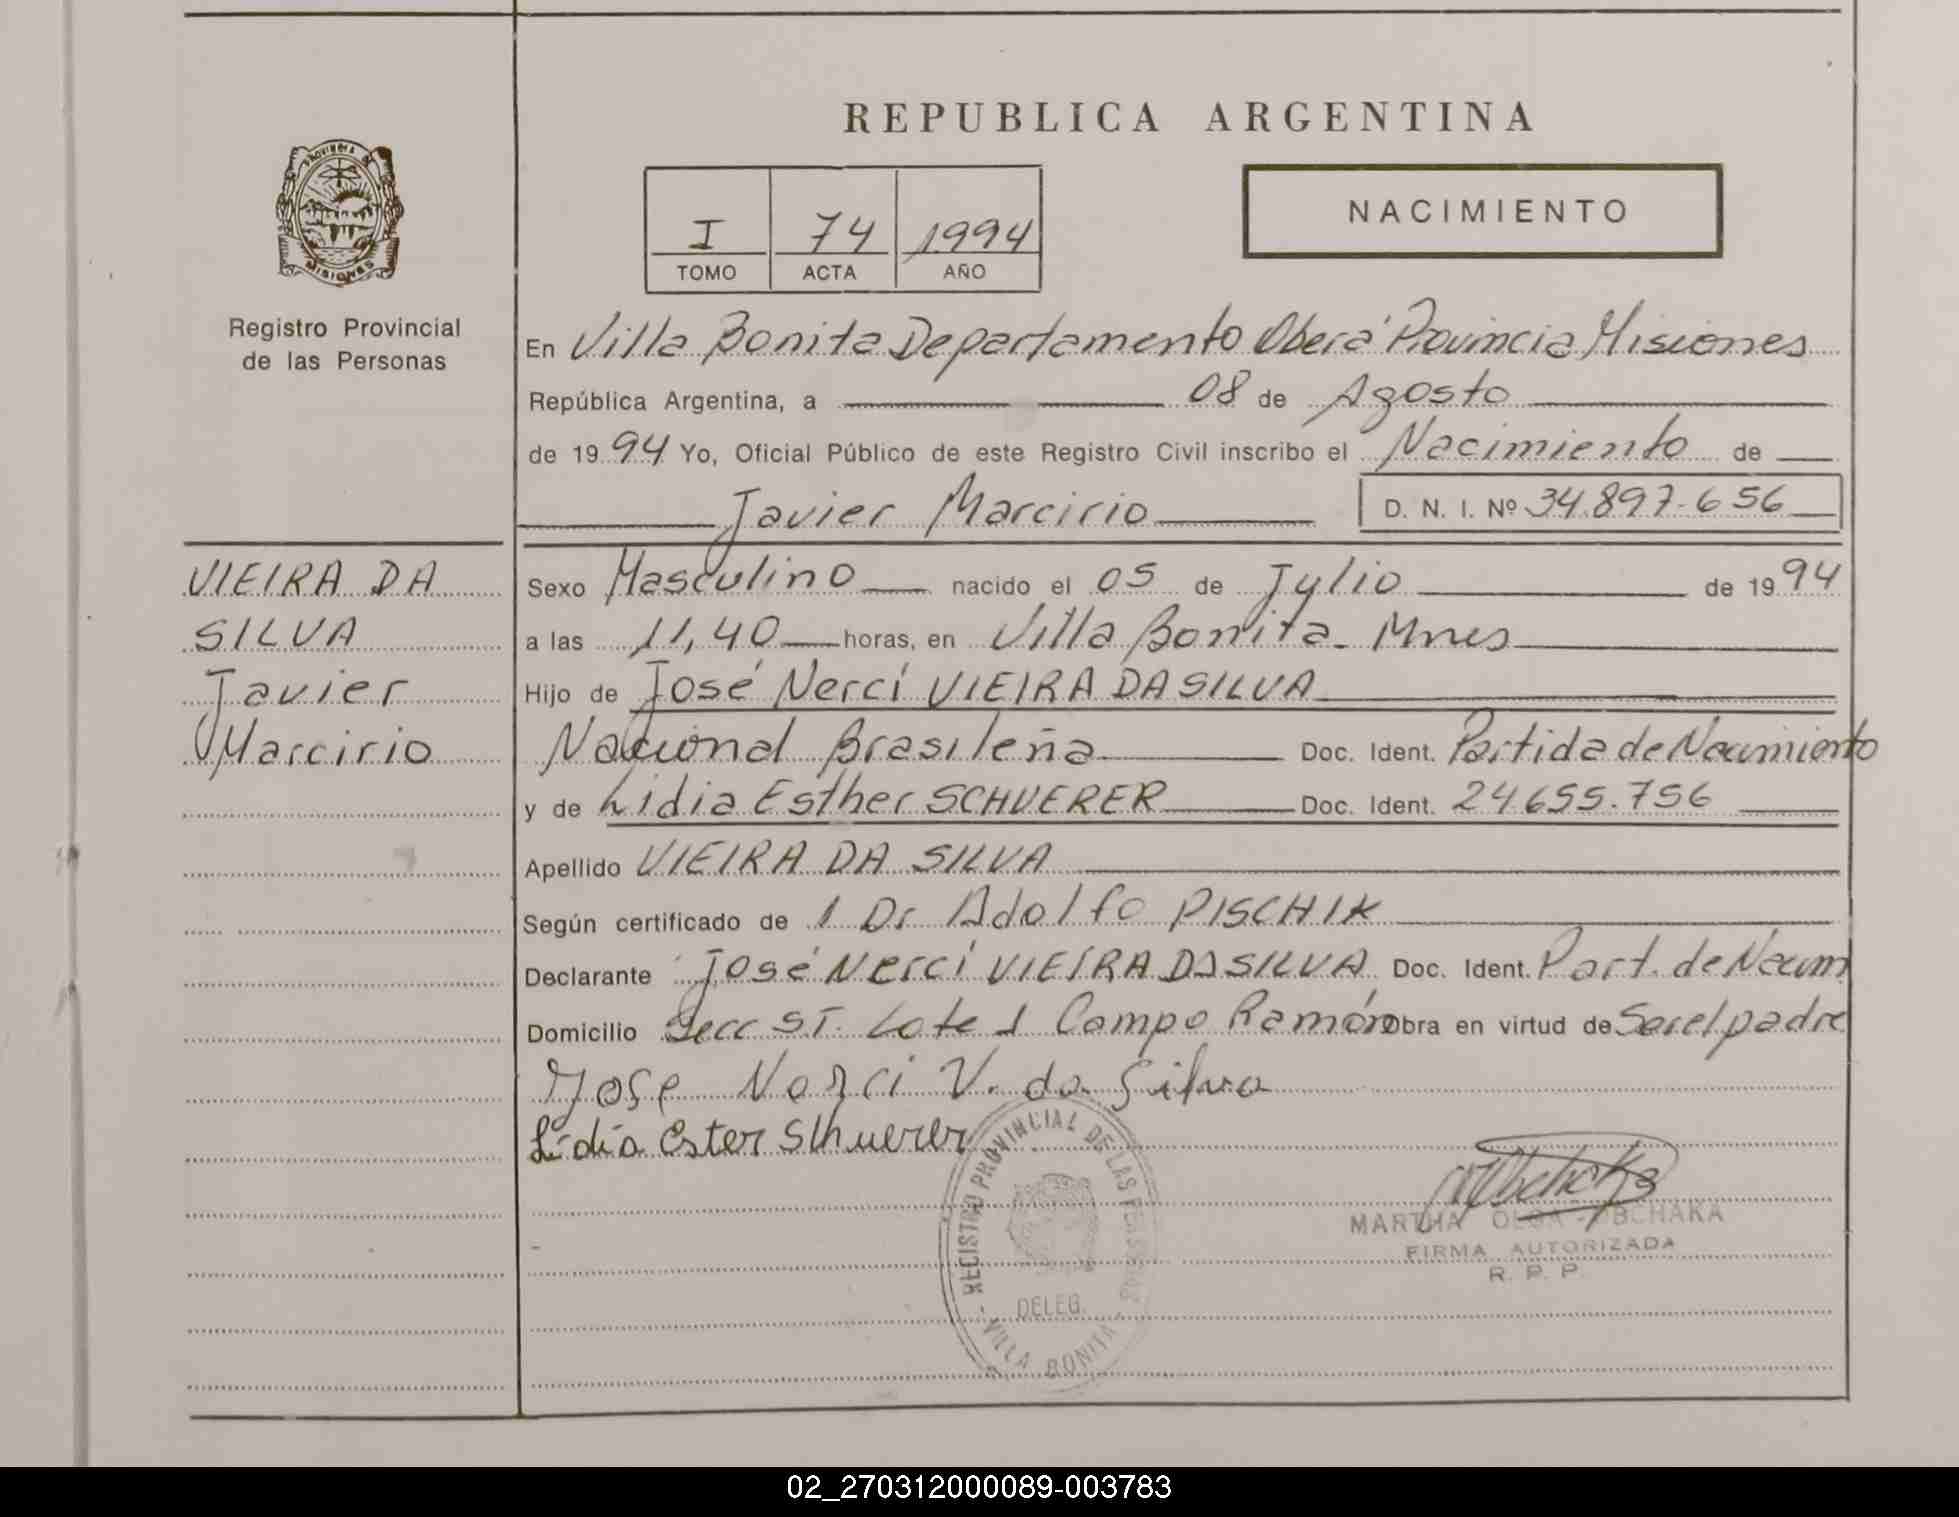 REPUBLICA ARGENTINA
PROVINCIA DE MISIONES
Registro Provincial
de las Personas
I 74 1994
TOMO ACTA AÑO
NACIMIENTO
En Villa Bonita Departamento Oberá Provincia Misiones
República Argentina, a 08 de Agosto
de 1994 Yo, Oficial Público de este Registro Civil inscribo el Nacimiento de
Javier Marcirio D. N. I. Nº 34.897.656
VIEIRA DA
SILVA
Javier
Marcirio
Sexo Masculino nacido el 05 de Julio de 1994
a las 11,40 horas, en Villa Bonita - Mnes
Hijo de José Nercí VIEIRA DA SILVA
Nacional Brasileña Doc. Ident. Partida de Nacimiento
y de Lidia Esther SCHUERER Doc. Ident. 24.655.756
Apellido VIEIRA DA SILVA
Según certificado de 1 Dr Adolfo PISCHIK
Declarante José Nercí VIEIRA DA SILVA Doc. Ident. Part. de Nacim
Domicilio Secc ST. Lote 1 Campo Ramón Obra en virtud de Ser el padre
Jose Nerci V. da Silva
Lidia Ester Schuerer
REGISTRO PROVINCIAL DE LAS PERSONAS
DELEG.
- VILLA BONITA -
MARTHA OLGA OBCHAKA
FIRMA AUTORIZADA
R. P. P.
02_270312000089-003783